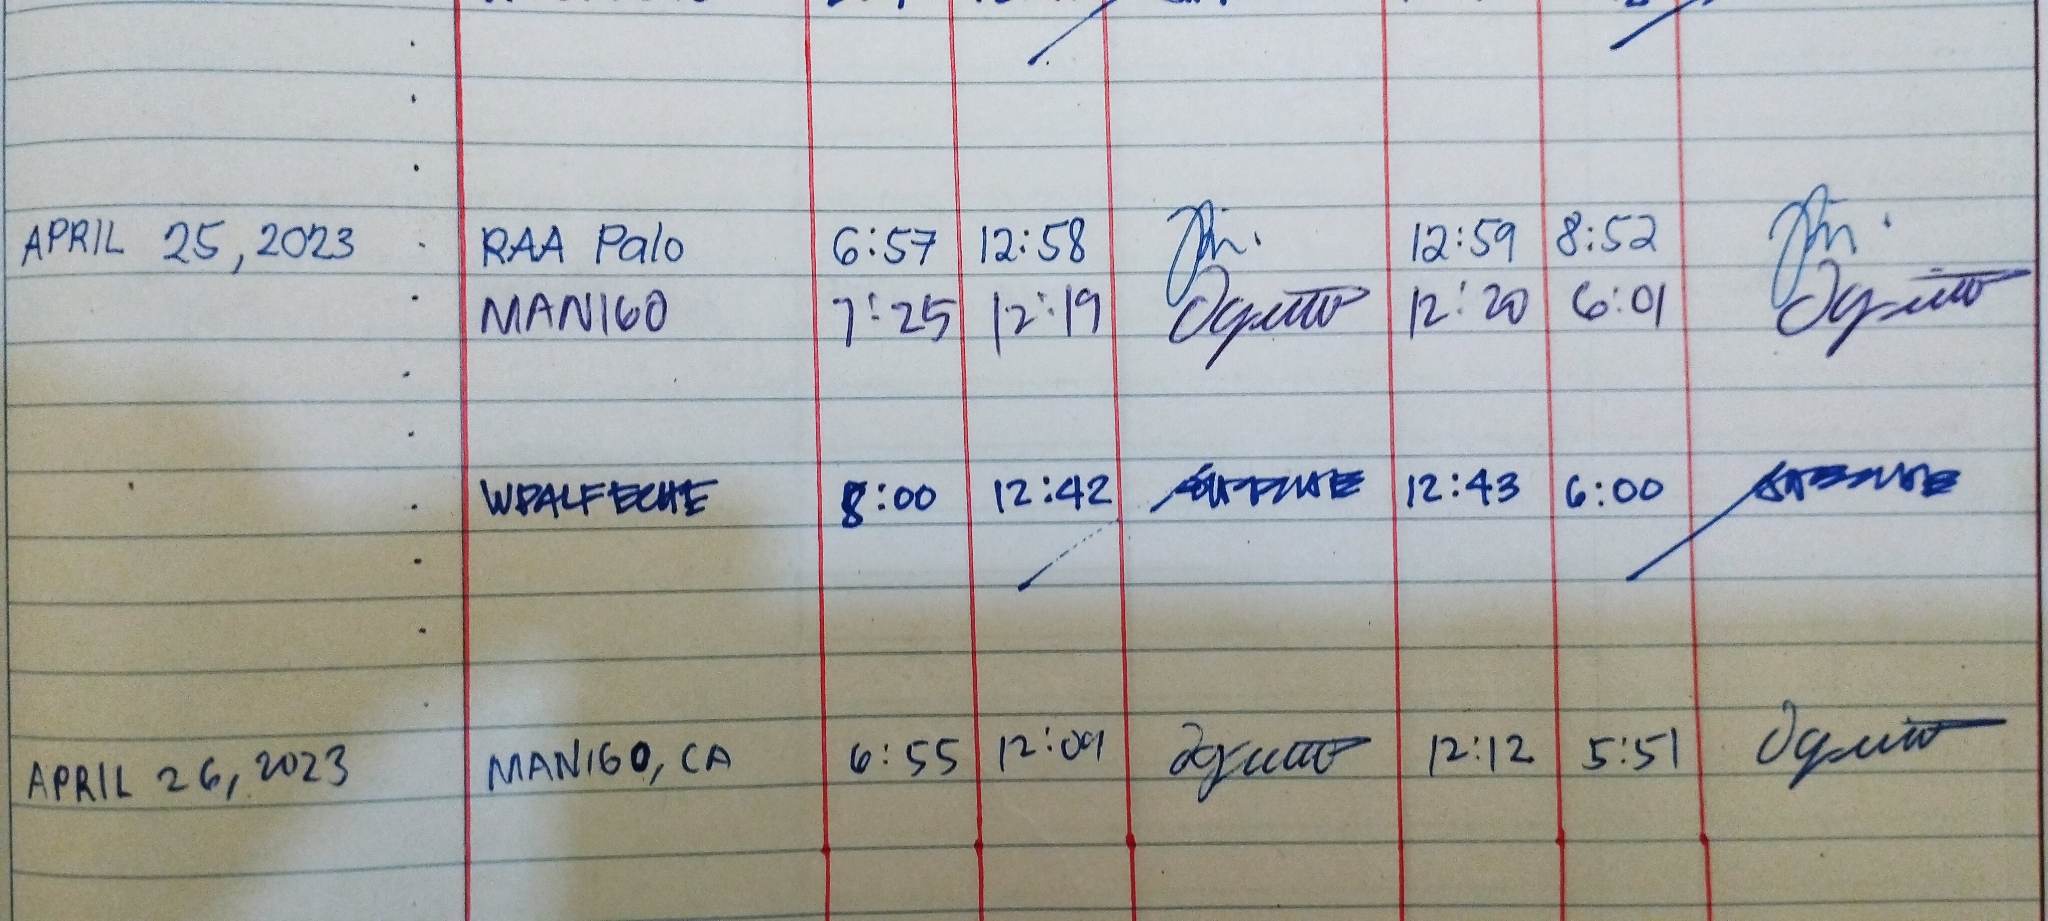 APRIL 25, 2023 RAA Palo 6:57 12:58 12:59 8:52
MANIGO 7:25 12:19 12:20 6:01
WPALFECHE 8:00 12:42 12:43 6:00
APRIL 26, 2023 MANIGO, CA 6:55 12:09 12:12 5:51